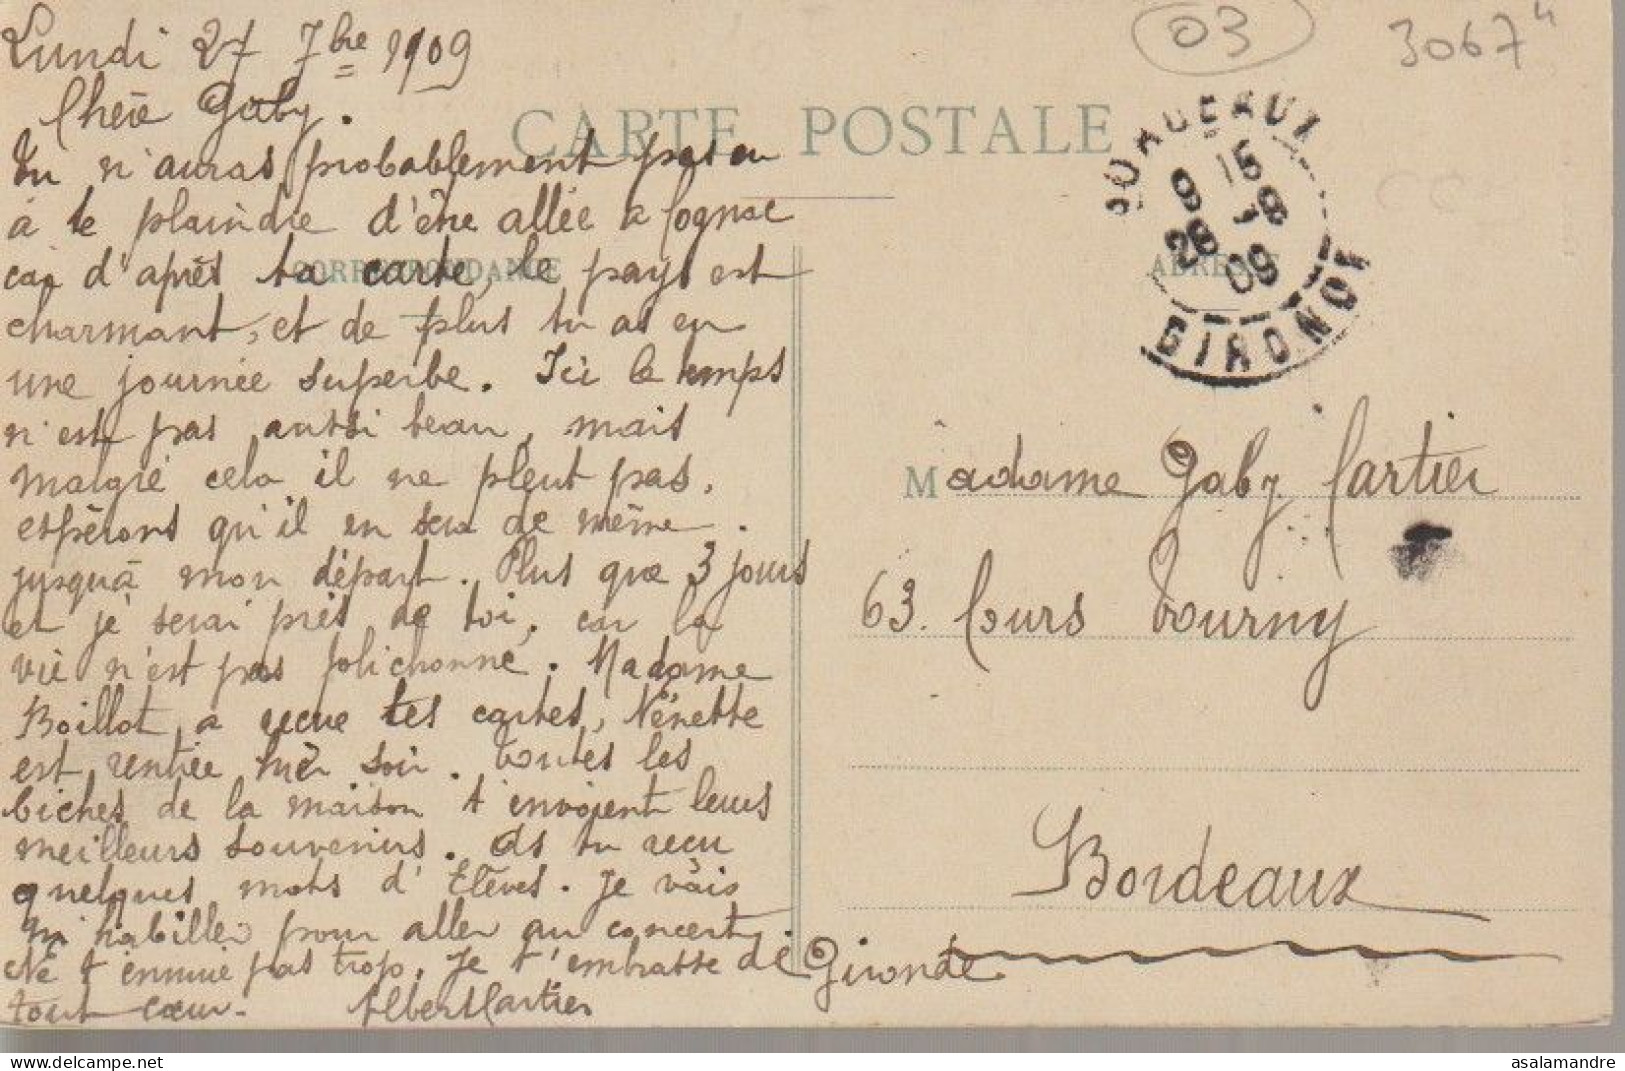 03
3067"
Lundi 27 7bre 1909
Chère Gaby.
CARTE POSTALE
Tu n'auras probablement pas eu
à te plaindre d'être allée à Cognac
car d'après ta carte, le pays est
CORRESPONDANCE
charmant, et de plus tu as eu
une journée superbe. Ici le temps
n'est pas aussi beau, mais
malgré cela il ne pleut pas,
espérons qu'il en sera de même
jusquà mon départ. Plus que 3 jours
et je serai près de toi, car la
vie n'est pas folichonne. Madame
Boillot a recue tes cartes, Nénette
est rentrée hièr soir. Toutes les
biches de la maison t'envoient leurs
meilleurs souvenirs. As tu recu
quelques mots d'Elèves. Je vais
m'habiller pour aller au concert.
Ne t'ennuie pas trop. Je t'embrasse de
tout cœur. Albert Cartier
BORDEAUX
15
28 9
09
GIRONDE
ADRESSE
Madame Gaby Cartier
63. Cours Tourny
Bordeaux
Gironde
asalamandre